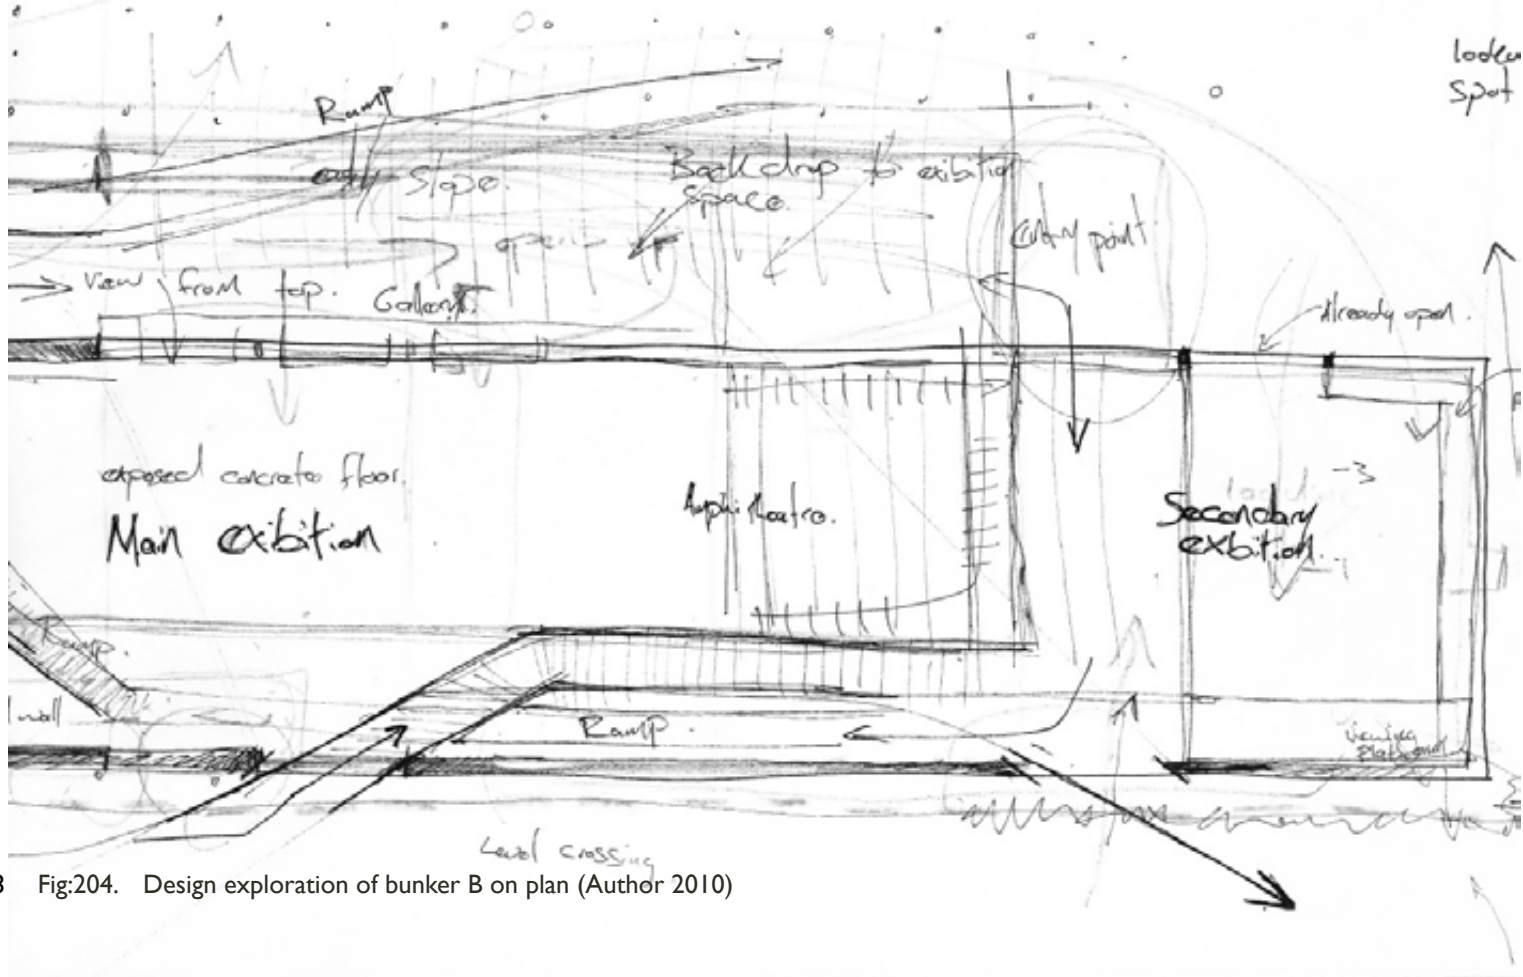 looko
spot
Ramp
Slope.
Backdrop to exibition
space.
entry point
opening
view from top.
Gallery
Already open.
exposed concrete floor.
Main exibition
Amphitheatre.
Secondary
exbition.
wall
Ramp.
viewing
Platform
Level crossing
8 Fig:204. Design exploration of bunker B on plan (Author 2010)